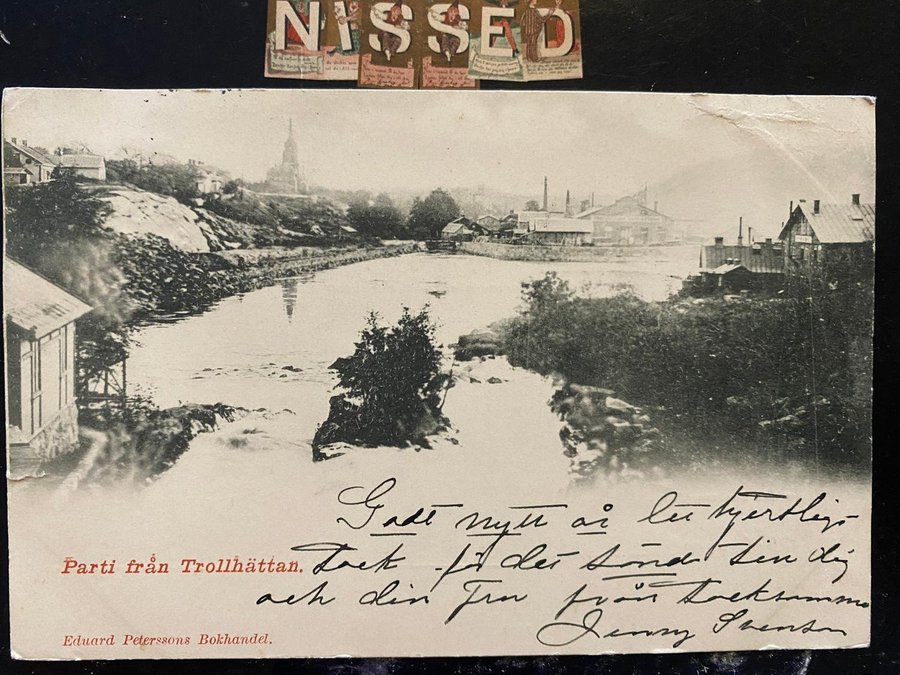 NISSED
Godt nytt år ett hjertligt
Tack för det sände Sin dig
och din Fru från tacksamma
Jenny Svenson
Parti från Trollhättan.
Eduard Peterssons Bokhandel.